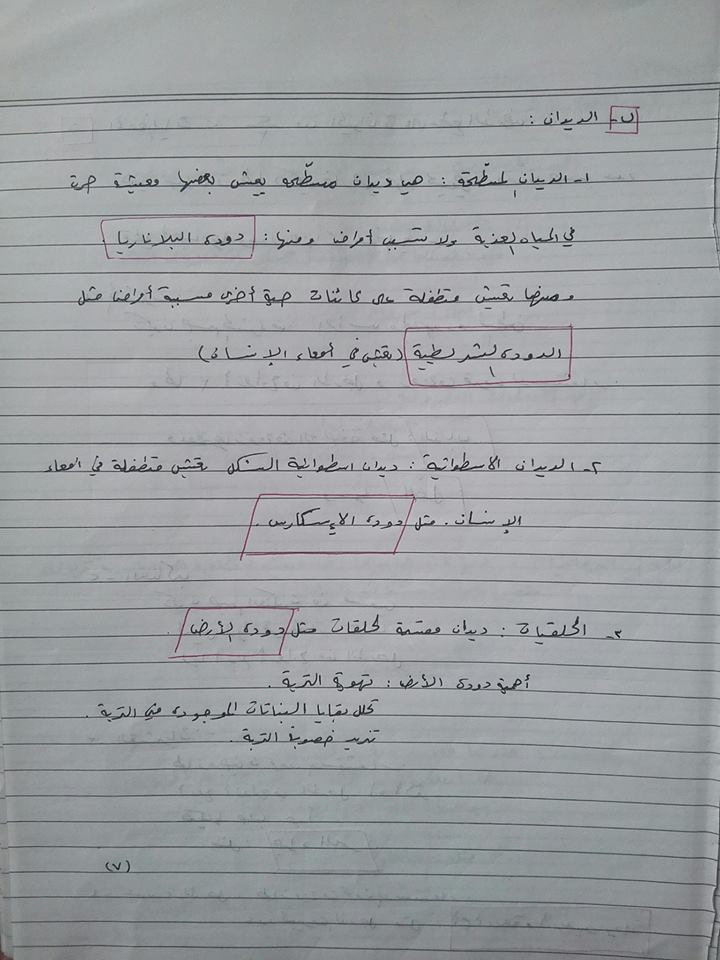 ب- الديدان :
١- الديدان المسطّحة : هي ديدان مسطّحة يعيش بعضها معيشة حرة
في المياه العذبة ولا تسبب أمراض ومنها : دودة البلاناريا .
وبعضها يعيش متطفلة على كائنات حية أخرى مسببة أمراضا مثل
الدودة الشريطية (تعيش في أمعاء الإنسان)
٢- الديدان الاسطوانية : ديدان اسطوانية الشكل تعيش متطفلة في امعاء
الإنسان . مثل دودة الإسكارس .
٣- الحلقيات : ديدان مقسمة لحلقات مثل دودة الأرض .
أهمية دودة الأرض : تهوية التربة .
تحلل بقايا النباتات الموجودة في التربة .
تزيد خصوبة التربة .
(٧)